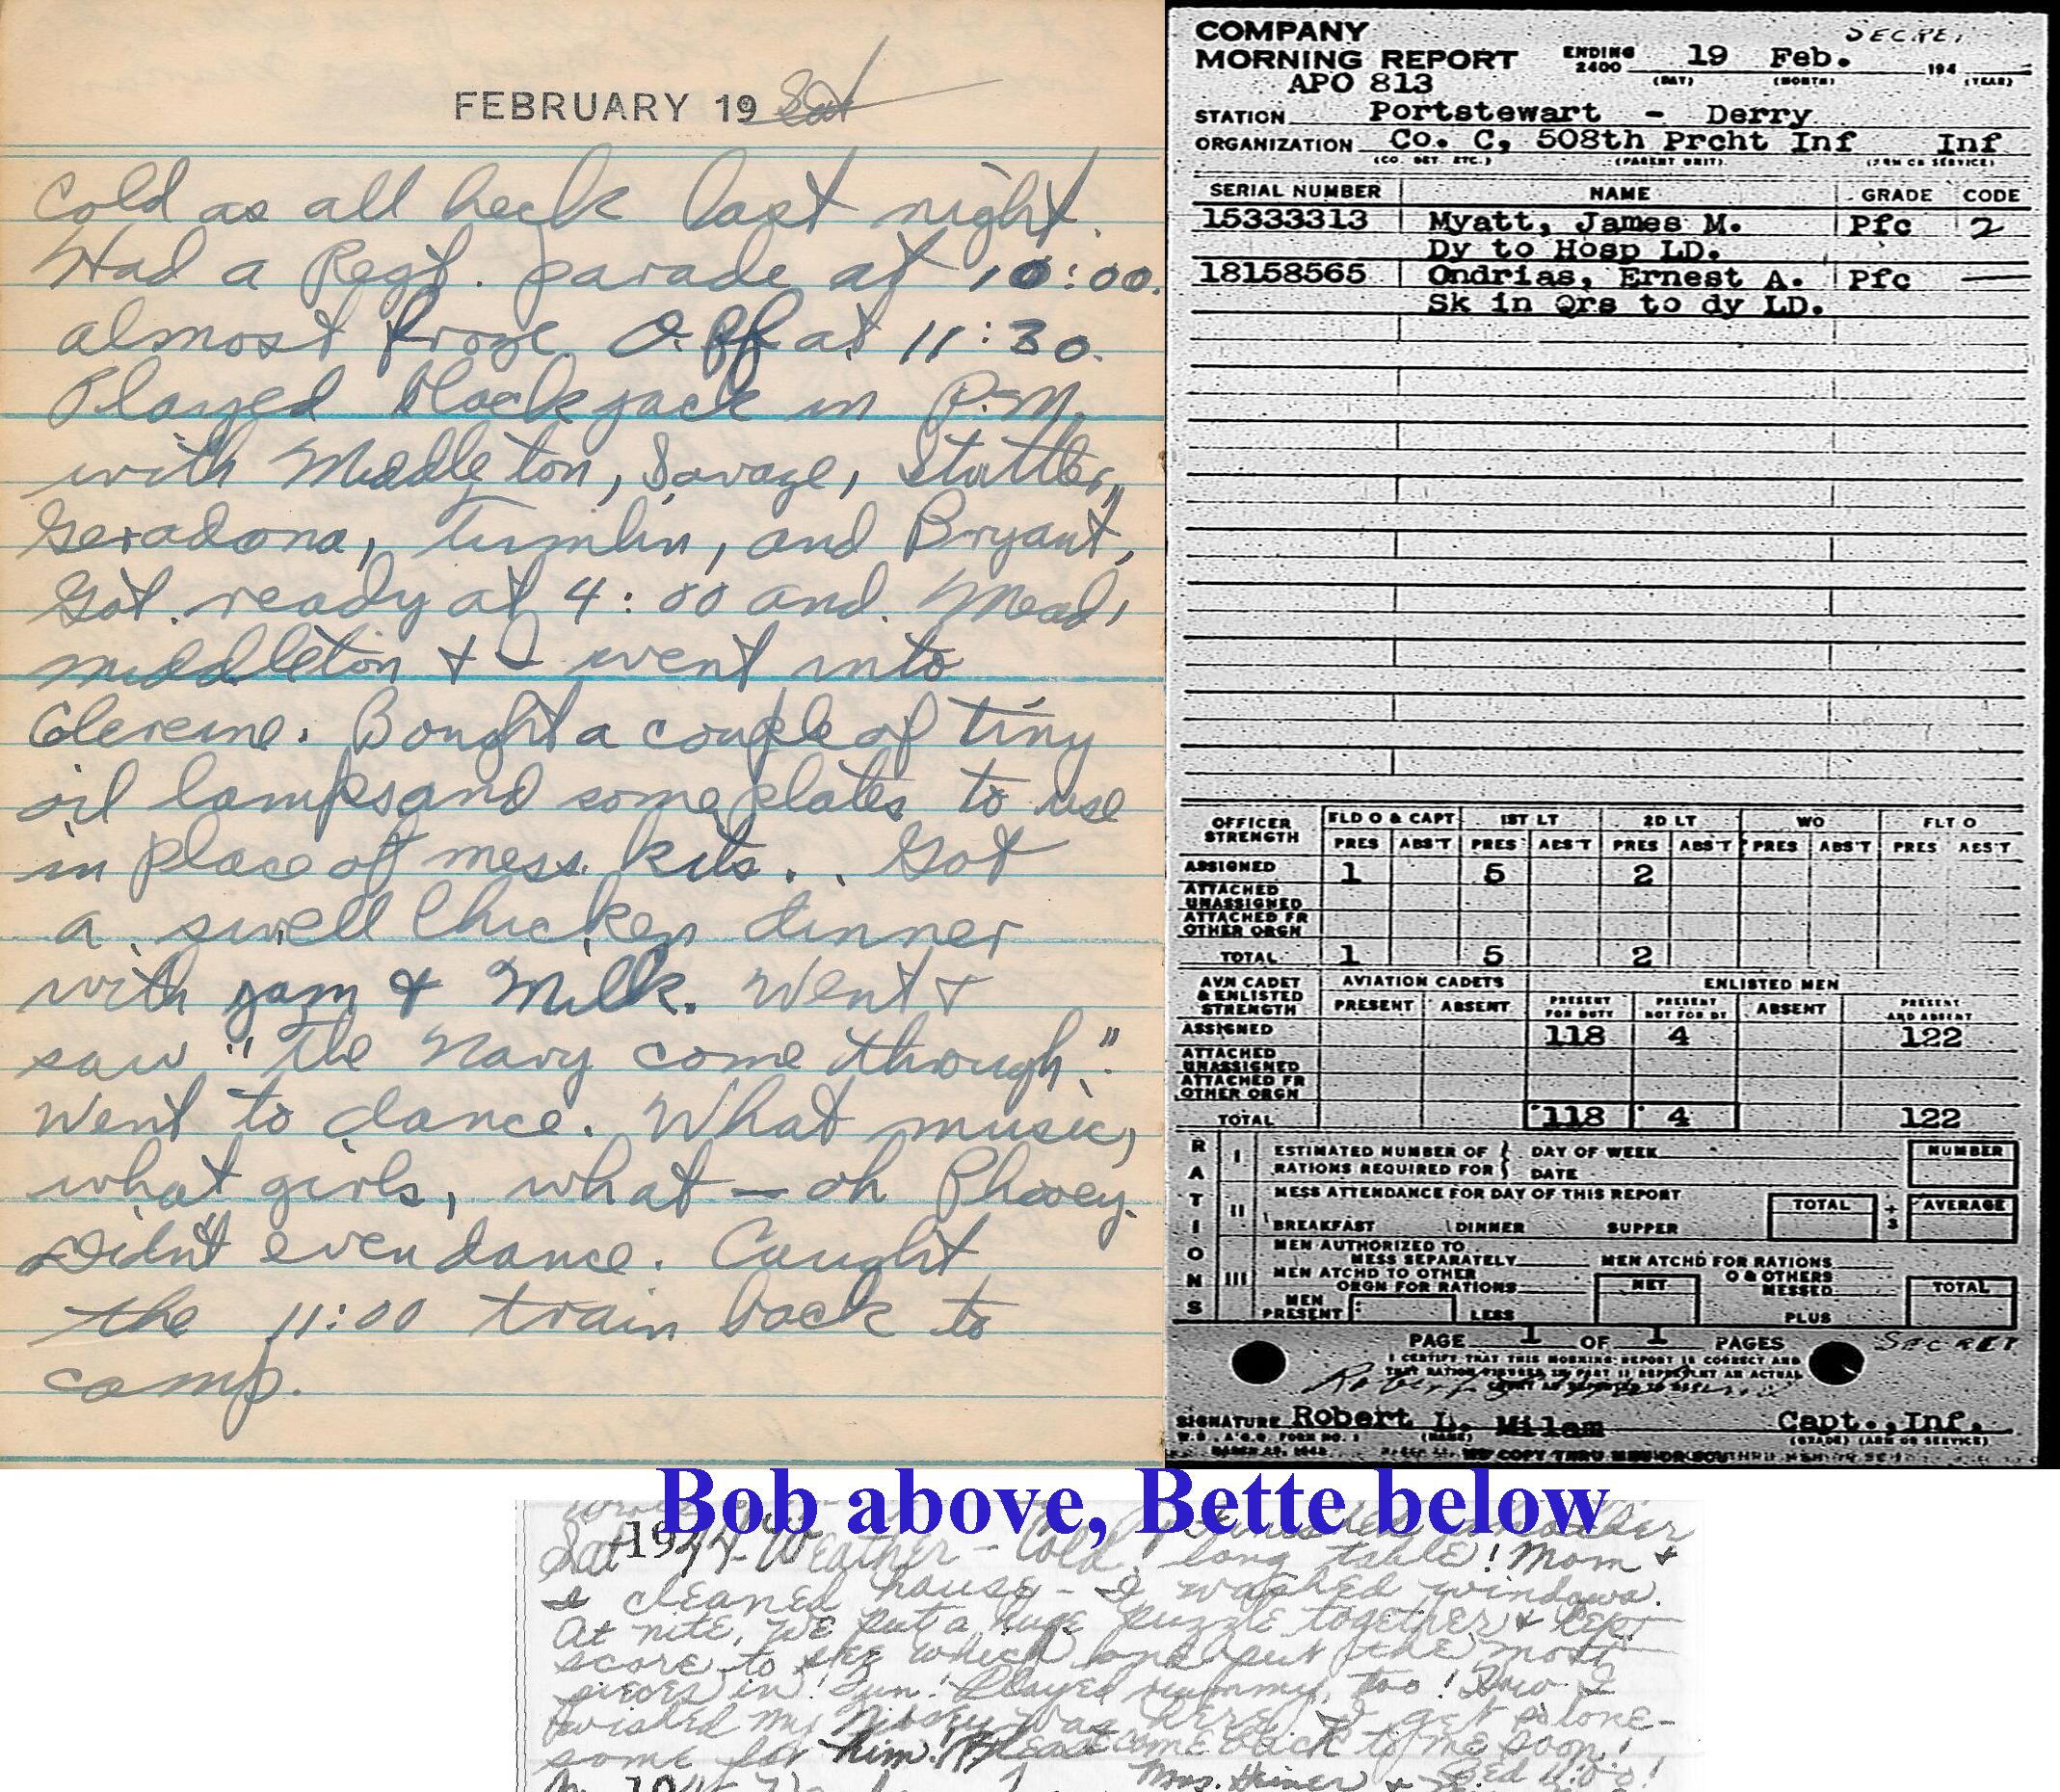 FEBRUARY 19 Sat
Cold as all heck last night.
Had a Regt. parade at 10:00.
almost froze Off at 11:30.
Played blackjack in P.M.
with Middleton, Savage, Stutler,
Geradona, Tumlin, and Bryant,
Got ready at 4:00 and Mead,
middleton + I went into
Colereine. Bought a couple of tiny
oil lamps and some plates to use
in place of mess kits.. Got
a swell Chicken dinner
with jam & Milk. Went &
saw "The Navy come through".
Went to dance. What music,
what girls, what — oh Phooey.
Didn't even dance. Caught
the 11:00 train back to
camp.
COMPANY
MORNING REPORT ENDING 2400 19 Feb. 194
SECRET
(DAY) (MONTH) (YEAR)
APO 813
STATION Portstewart - Derry
ORGANIZATION Co. C, 508th Prcht Inf Inf
(CO. DET. ETC.) (PARENT UNIT) (ARM OR SERVICE)
SERIAL NUMBER NAME GRADE CODE
15333313 Myatt, James M. Pfc 2
Dy to Hosp LD.
18158565 Ondrias, Ernest A. Pfc —
Sk in Qrs to dy LD.
OFFICER STRENGTH FLD O & CAPT 1ST LT 2D LT WO FLT O
PRES ABS'T PRES ABS'T PRES ABS'T PRES ABS'T PRES ABS'T
ASSIGNED 1 5 2
ATTACHED UNASSIGNED
ATTACHED FR OTHER ORGN
TOTAL 1 5 2
AVN CADET & ENLISTED STRENGTH AVIATION CADETS ENLISTED MEN
PRESENT ABSENT PRESENT FOR DUTY PRESENT NOT FOR DY ABSENT PRESENT AND ABSENT
ASSIGNED 118 4 122
ATTACHED UNASSIGNED
ATTACHED FR OTHER ORGN
TOTAL 118 4 122
RATIONS
I ESTIMATED NUMBER OF RATIONS REQUIRED FOR { DAY OF WEEK DATE NUMBER
II MESS ATTENDANCE FOR DAY OF THIS REPORT TOTAL ÷ 3 AVERAGE
BREAKFAST DINNER SUPPER
III MEN AUTHORIZED TO MESS SEPARATELY MEN ATCHD FOR RATIONS
MEN ATCHD TO OTHER ORGN FOR RATIONS O & OTHERS MESSED
MEN PRESENT LESS NET PLUS TOTAL
PAGE 1 OF 1 PAGES SECRET
I CERTIFY THAT THIS MORNING REPORT IS CORRECT AND
SIGNATURE Robert L. Milam Capt., Inf.
(NAME) (GRADE) (ARM OR SERVICE)
W.D., A.G.O. FORM NO. 1
Bob above, Bette below
Sat 1944 - Weather - Cold. long table! Mom +
I cleaned house - I washed windows.
At nite, we put a huge puzzle together & kept
score to see which one put the most
pieces in! Fun! Played rummy, too! How I
wished my was here! I get so lone-
some for him! Please come back to me soon!
Mrs. Heiner &